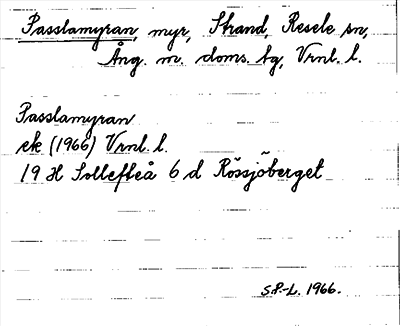 Passlamyran, myr, Strand, Resele sn,
Ång. m. doms. tg, Vrnl. l.
Passlamyran
ek (1966) Vrnl. l.
19 H Sollefteå 6 d Rössjöberget
S.P.-L. 1966.